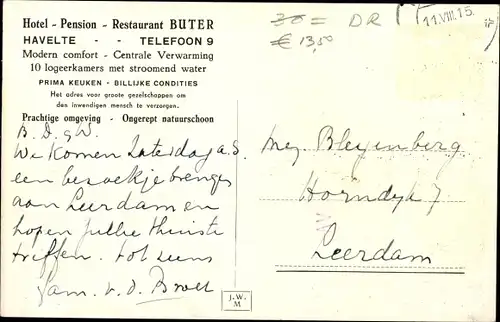 Hotel - Pension - Restaurant BUTER
HAVELTE - - TELEFOON 9
Modern comfort - Centrale Verwarming
10 logeerkamers met stroomend water
PRIMA KEUKEN - BILLIJKE CONDITIES
Het adres voor groote gezelschappen om
den inwendigen mensch te verzorgen.
Prachtige omgeving - Ongerept natuurschoon
B.D.g.W.
We komen Zaterdag a.s.
een bezoekje brengen
aan Leerdam en
hopen jullie thuis te
treffen. tot ziens
Fam. v. d. Broek
J.W.
M
30 = DR
€ 13,50
11.VIII.15.
Bleyenberg
Horndyk 7
Leerdam